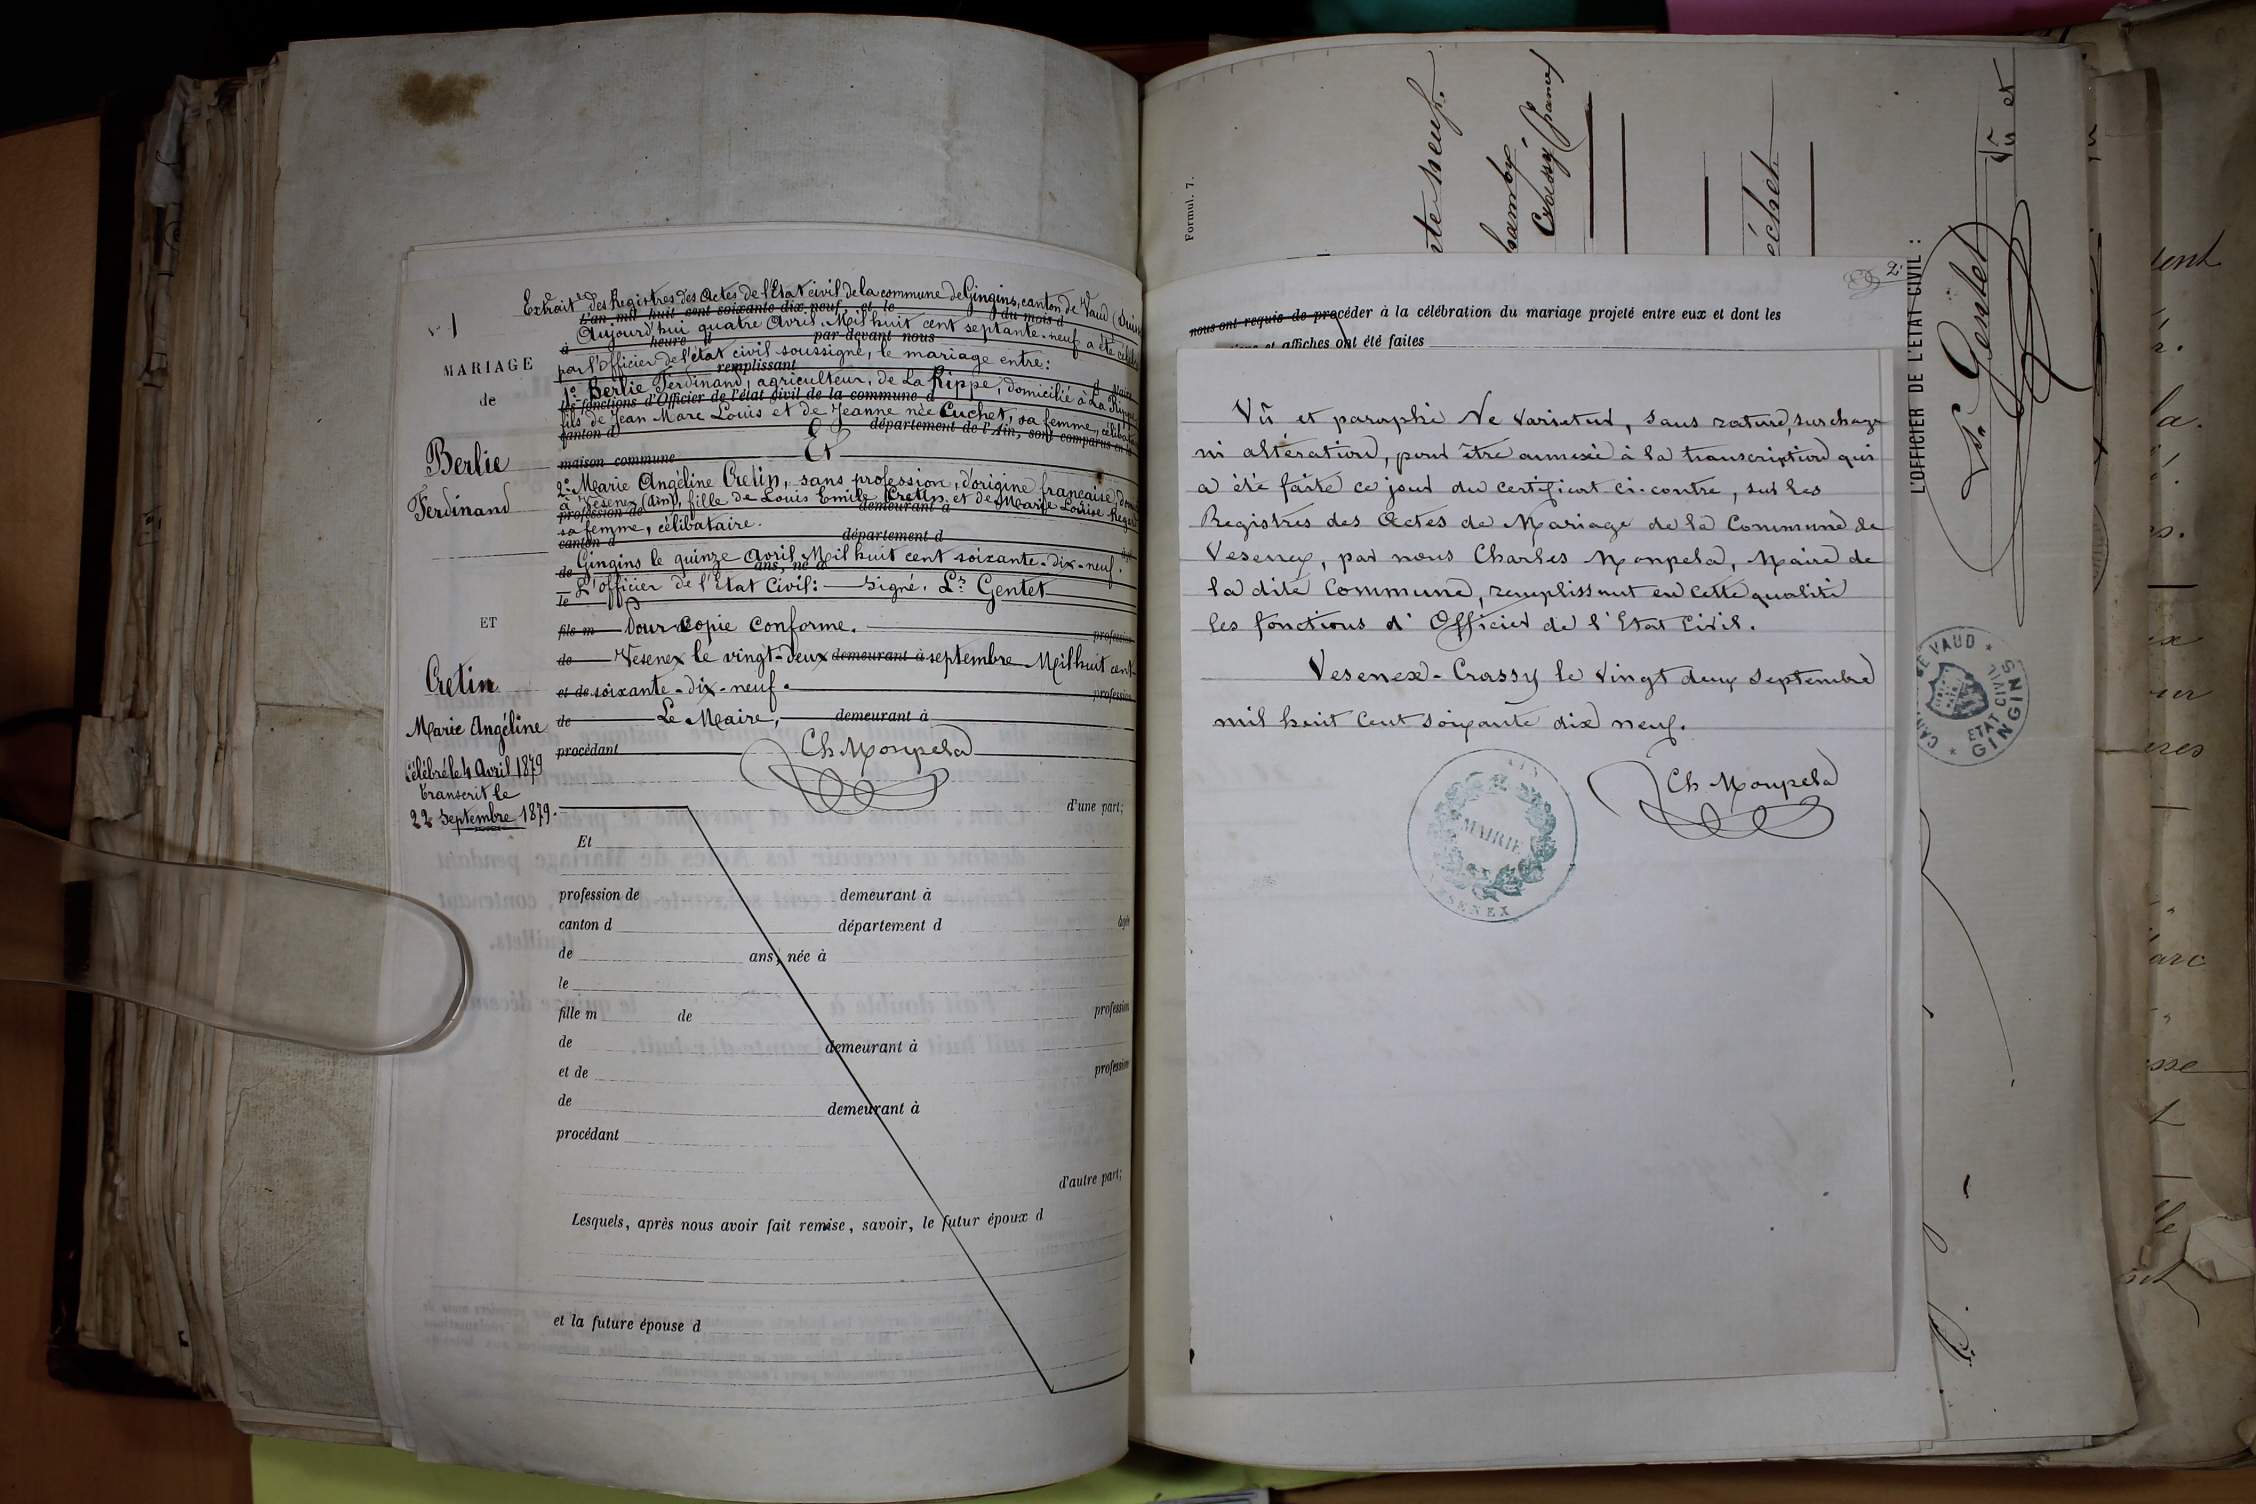 N° 1
MARIAGE
de
Berlie
Ferdinand
ET
Cretin
Marie Angéline
Célébré le 4 Avril 1879
transcrit le
22 Septembre 1879.
Extrait des Registres des Actes de l'Etat civil de la commune de Gingins, canton de Vaud
L'an mil huit cent soixante-dix-neuf, et le du mois d
Aujourd'hui quatre Avril Mil huit cent septante-neuf a été
à heure d par devant nous
par l'Officier de l'état civil soussigné, le mariage entre:
remplissant
1° Berlie Ferdinand, agriculteur, de La Rippe, domicilié à La Rippe
les fonctions d'Officier de l'état civil de la commune d
fils de Jean Marc Louis et de Jeanne née Cuchet, sa femme,
canton d département de l'Ain, sont comparus en la
maison commune Et
2° Marie Angéline Cretin, sans profession, d'origine française,
à Vesenex (Ain), fille de Louis Emile Cretin et de Marie Louise
profession de demeurant à
sa femme, célibataire.
canton d département d
Gingins le quinze Avril Mil huit cent soixante-dix-neuf.
de ans, né à
L'officier de l'Etat Civil: signé. Ls Gentet
le
fils m Pour copie conforme. profession
de Vesenex le vingt-deux demeurant à septembre Mil huit cent
et de soixante-dix-neuf. profession
de Le Maire, demeurant à
procédant Ch Monpela
d'une part;
Et
profession de demeurant à
canton d département d âgée
de ans, née à
le
fille m de profession
de demeurant à
et de profession
de demeurant à
procédant
d'autre part;
Lesquels, après nous avoir fait remise, savoir, le futur époux d
et la future épouse d
Formul. 7.
Crassy (france)
2
nous ont requis de procéder à la célébration du mariage projeté entre eux et dont les
et affiches ont été faites
Vû et paraphé Ne Varietur, sans rature, surcharge
ni altération, pour être annexé à la transcription qui
a été faite ce jour du certificat ci-contre, sur les
Registres des Actes de Mariage de la Commune de
Vesenex, par nous Charles Monpela, Maire de
la dite Commune, remplissant en cette qualité
les fonctions d'Officier de l'Etat Civil.
Vesenex-Crassy le vingt deux septembre
mil huit cent soixante dix neuf.
Ch Monpela
MAIRIE
L'OFFICIER DE L'ÉTAT CIVIL :
Ls Gentet
Vû et
DE VAUD
ETAT CIVIL
GINGINS